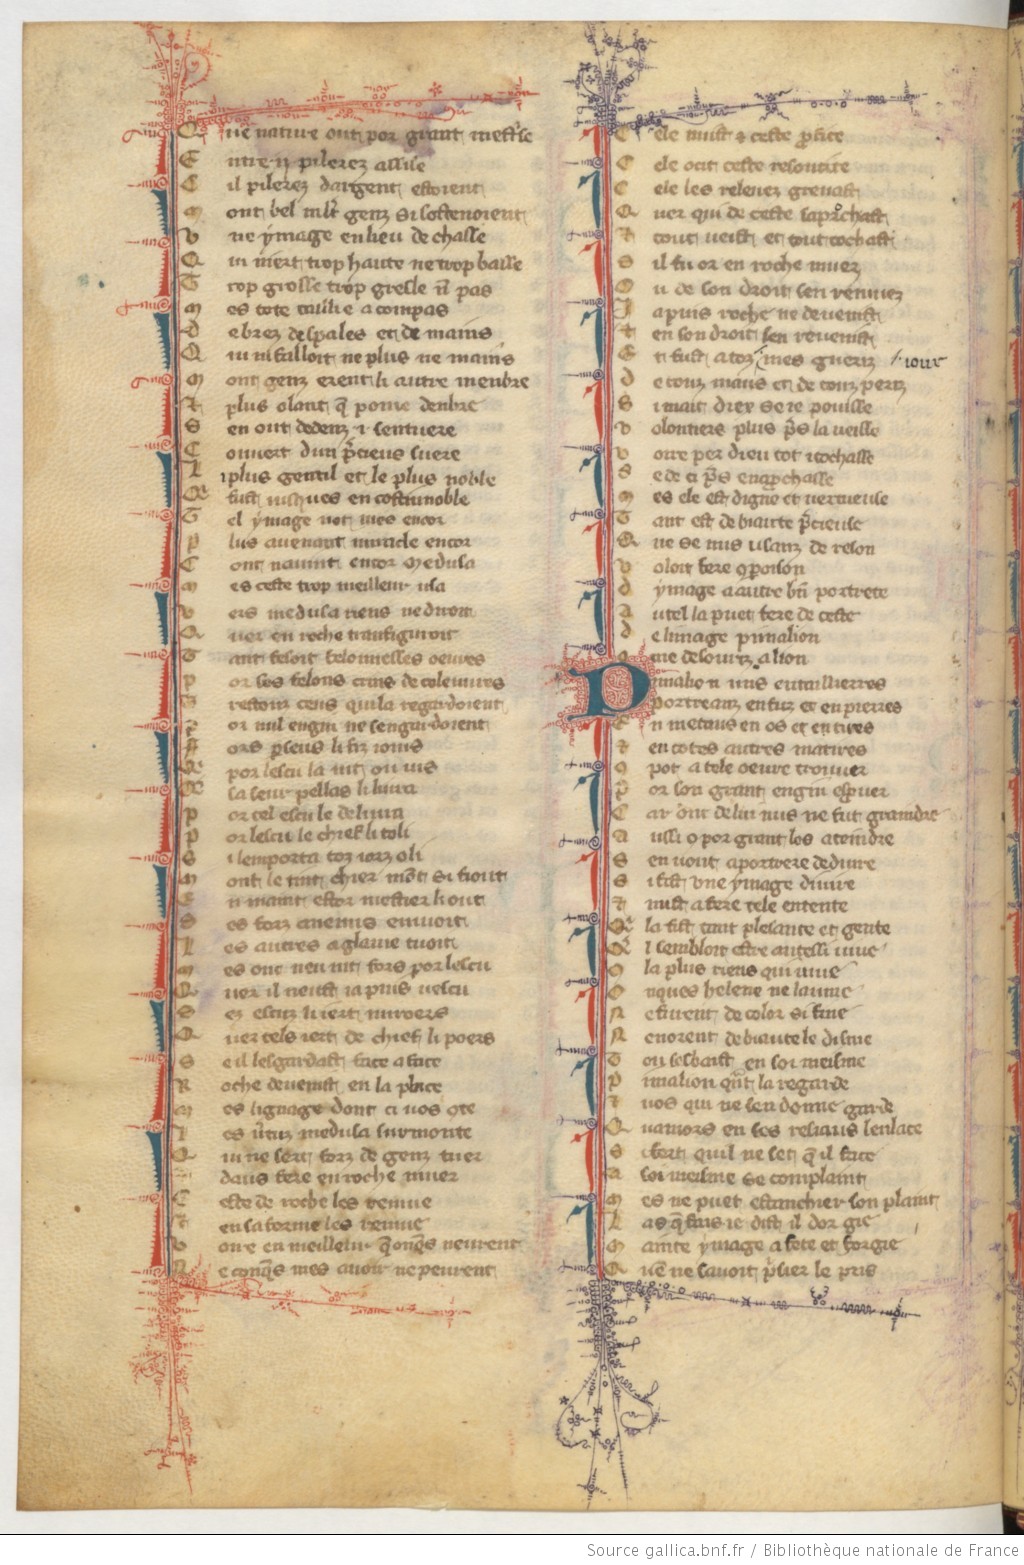 Q ue nature ont por grant mestrie
E ntre ii pilerez assise
C il pilerez dargent estoient
M ont bel mlt genz si sostenoient
V ne ymage en lieu de chasse
Q ui niert trop haute ne trop basse
T rop grosse trop gresle nl pas
M es tote taillie a compas
D e brez despales et de mains
Q ui ni failloit ne plus ne mains
M ont genz erent li autre menbre
& plus olant q pome denbre
S en out dedenz i sentuere
C ouvert dun pcieus suere
L i plus gentil et le plus noble
Q fust iusques en costantinoble
T el ymage not mes encor
P lus auenant miracle encor
C ont nauint encor medusa
M es ceste trop meilleur usa
V ers medusa riens ne duroit
Q uer en roche transfiguroit
T ant fesoit felonnesses oeures
P or ses felons crins de coleuures
Trestouz ceus qui la regardoient
P or nul engin ne sengardoient
F ors pseus li filz iouis
Q por lescu la uit ou uis
Q sa seur pallas li liura
P or cel escu le deliura
P or lescu le chief li toli
S i lemporta toz iorz o li
M ont le tint chier mlt si fiout
E n maint estor mestier li out
S es forz anemis en muoit
L es autres a glaiue tuoit
M es onc neu uit fors por lescu
Q uer il neust ia puis uescu
S ez escuz li iert miroers
Q uer tels iert de chief li poers
S e il lesgardast face a face
R oche deuenist en la place
M es lignage dont ci uos cote
L es utuz medusa surmonte
Q ui ne sert forz de genz tuer
daus fere en roche muer
C este de roche les remue
& en sa forme les remue
V oire en meilleur q onqs neurent
N e conqs mes auoir ne peurent
C ele nuist & ceste pfite
C ele ocit ceste resoucite
C ele les releuez greuast
Q uer qui de ceste saprochast
& tout ueist et tout tochast
S il fu or en roche muez
O u de son droit sen remuez
J a puis roche ne deuenist
& en son droit sen reuenist
E t fust a toz / mes gueriz / iourz
D e touz maus et de touz periz
S i mait diex se ie pouisse
V olontiers plus ps la ueisse
V oire per dieu tot i tochasse
S e de ci ps en aprochasse
M es ele est digne et uertueuse
T ant est de biaute pcieuse
Q ue se nus usanz de reson
V oloit fere cparoison
D ymage a autre bn portrete
A utel la puet fere de ceste
D e limage pimalion
Q ue de souriz a lion
P imalion uns entaillierres
Portreanz en fuz et en pierres
E n metaus en os et en cires
& en totes autres matires
Q pot a tele oeure trouuer
P or son grant engin esprouer
C ar ont de lui nus ne fut graindre
A ussi o por grant los ateindre
S en uont a portrere deduire
S i fist vne ymage diuire
& mist a fere tele entente
Q la fist tant plesante et gente
Q l sembloit estre autessi uiue
C la plus riens qui uiue
O nques helene ne lauine
N e furent de color si fine
N e norent de biaute le disme
T ou sesbaist en soi meisme
P imalion qnt la regarde
& uos qui ne sen donne garde
Q uamors en ses resiaus lenlace
S i fort quil ne set q il face
A soi meisme se complaint
M es ne puet estanchier son plaint
L as q fais ie dist il dor gie
M ainte ymage a fete et forgie
Q ue ne sauoit psier le pris
Source gallica.bnf.fr / Bibliothèque nationale de France